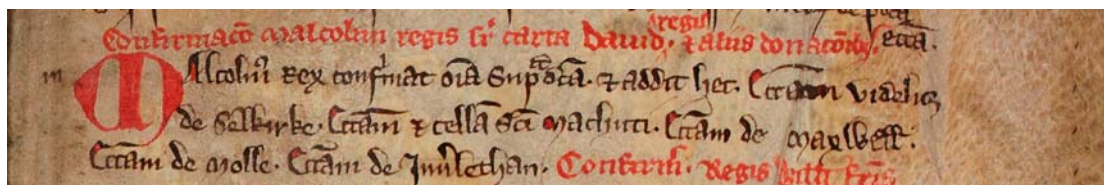 Confirmacō Malcolmi regis sr̄ carta Dauid regis ⁊ aliis donacōib; ecctā.
iii MAlcolm̄ Rex confirmat oīa Supᵃdcā. ⁊ addit hec. Ecctam videlicȝ
de Selkirke. Ecctam ⁊ cellā Sc̄i Machuti. Ecctam de Maxwell.
Ecctam de Molle. Ecctam de Inuˀlethan. Confirm̄. Regis Willi fr̄is